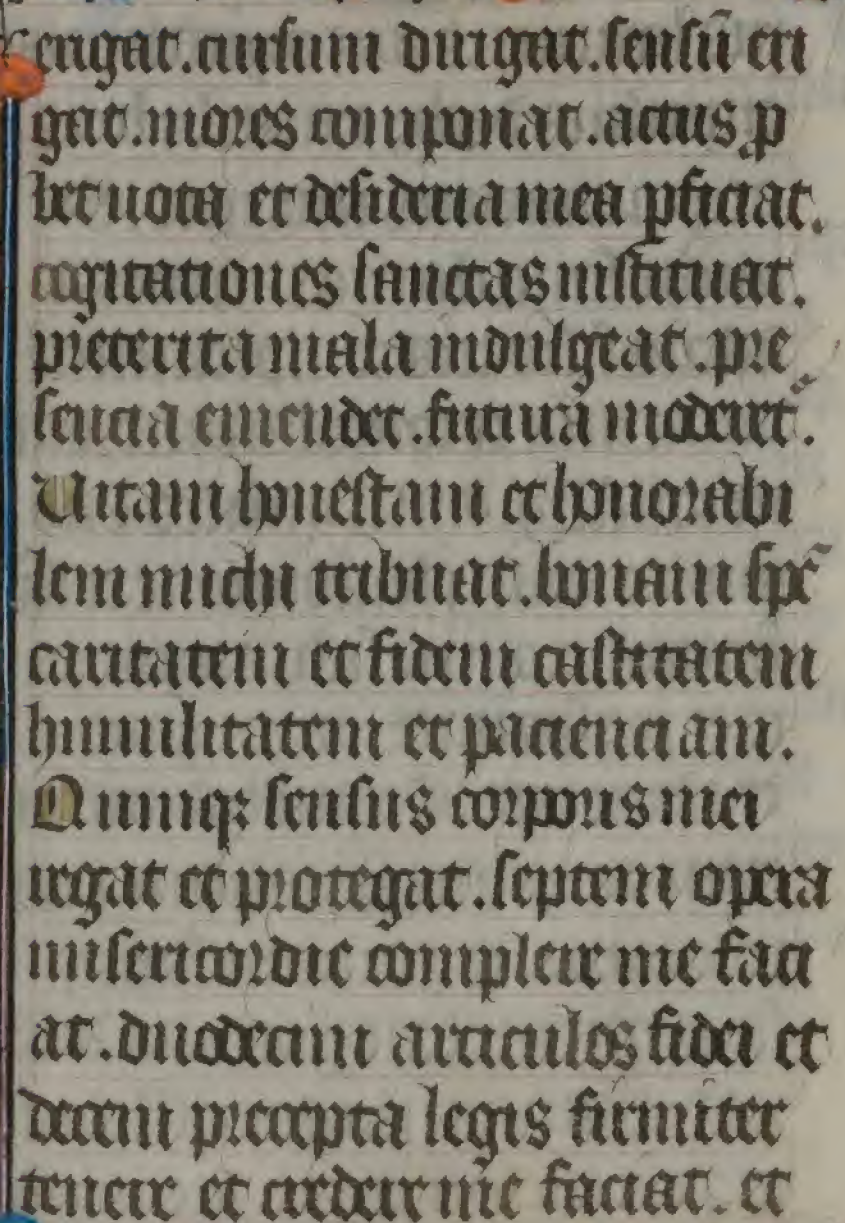 erigat. cursum dirigat. sensū eri
gat. mores componat. actus ꝓ
bet uota et desideria mea ꝑficiat.
cogitationes sanctas instituat.
preterita mala indulgeat. pre
sencia emendet. futura moderet᷑.
Uitam honestam et honorabi
lem michi tribuat. bonam spē
caritatem et fidem castitatem
humilitatem et pacienciam.
Quinqꝫ sensus corporis mei
regat et protegat. septem opera
misericordie complere me faci
at. duodecim articulos fidei et
decem precepta legis firmiter
tenere et credere me faciat. et